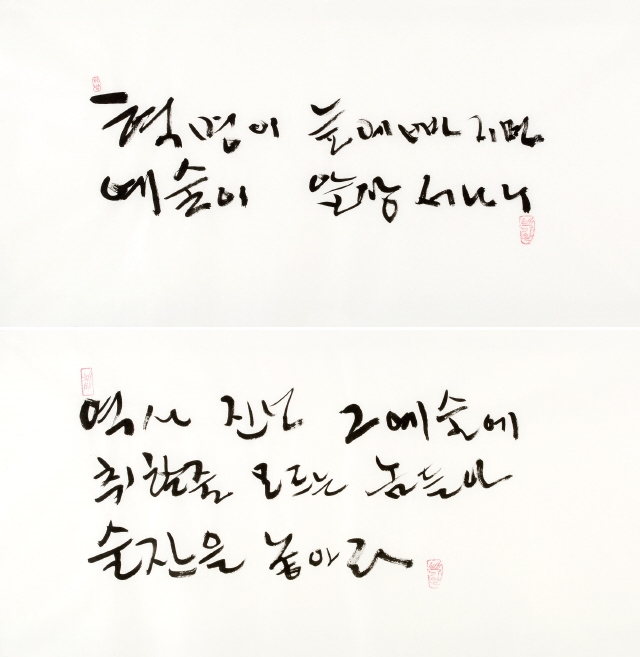 혁명이 늪에 빠지면
예술이 앞장 서나니
역사 그 예술에
취할줄 모르는 놈들아
술잔을 놓아라